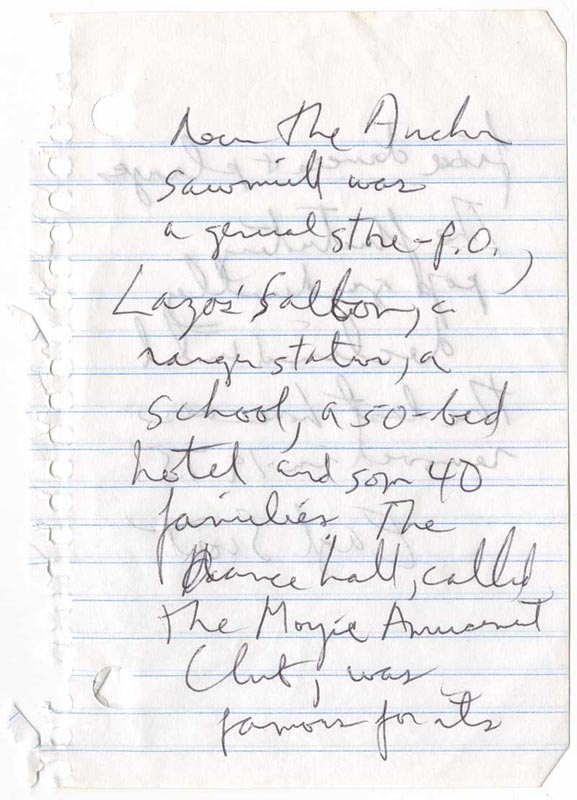 Near the Anchor
sawmill was
a general store-P.O.,
Lazos' Saloon, a
ranger station, a
school, a 50-bed
hotel and som 40
families. The
Dance hall, called
the Moyie Amusement
Club, was
famous for its